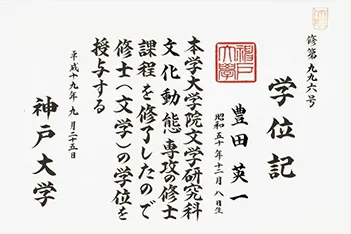 修第九九六号
学位記
豊田英一
昭和五十年十二月八日生
神戸大学
本学大学院文学研究科
文化動態専攻の修士
課程を修了したので
修士（文学）の学位を
授与する
平成十九年九月二十五日
神戸大学